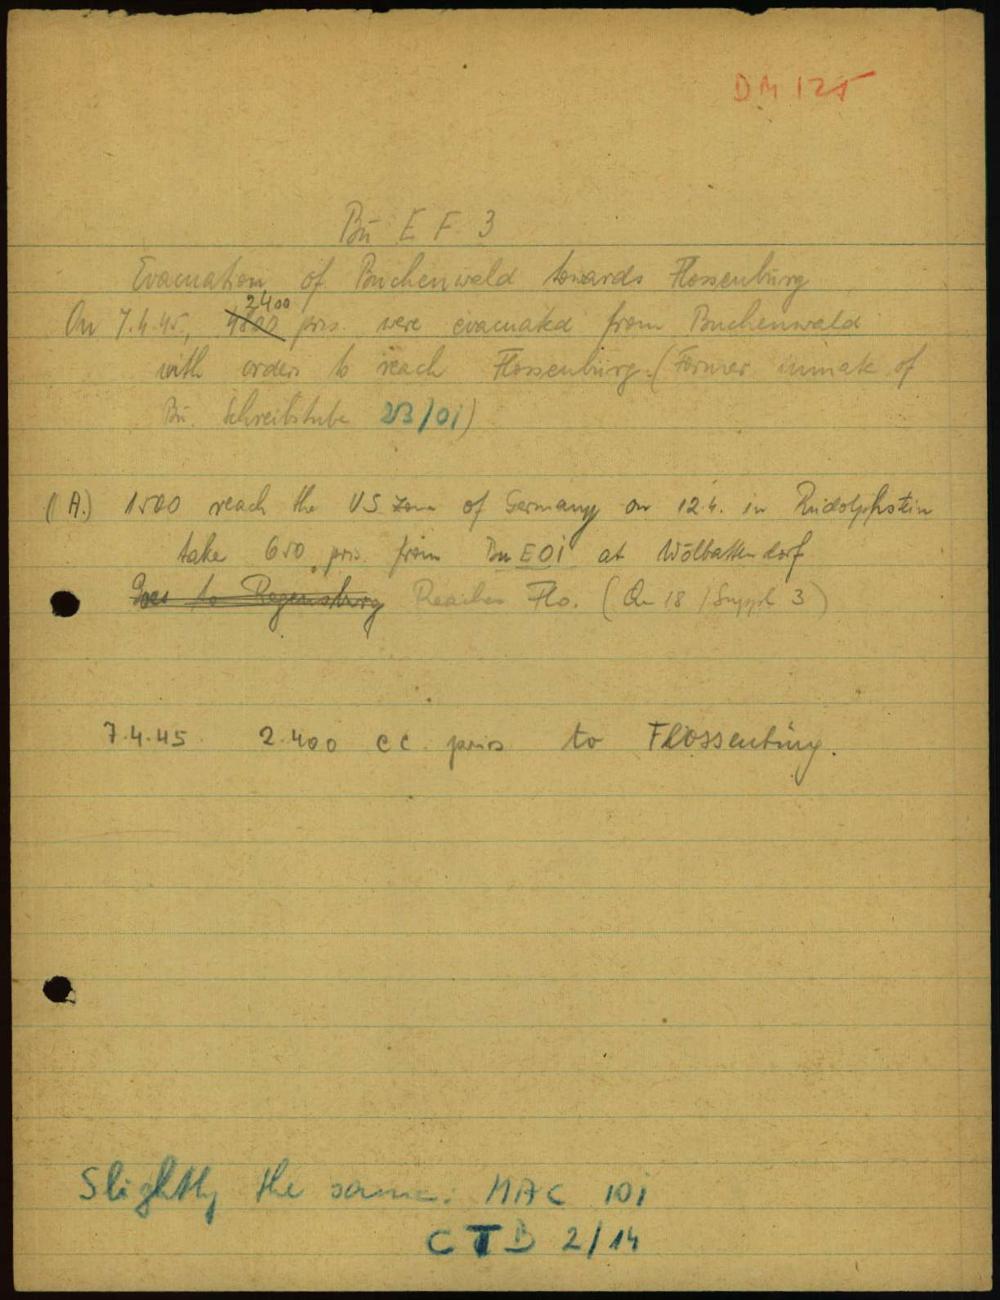 DM 125
Bu E F 3
Evacuation of Buchenwald towards Flossenbürg
On 7.4.45, 4800 2400 pris. were evacuated from Buchenwald
with orders to reach Flossenbürg. (Former inmate of
Bu. Schreibstube 23/0i)
(A.) 1500 reach the US zone of Germany on 12.4. in Rudolphstein
take 650 pris. from Bu E0i at Wölbattendorf
Goes to Regensburg Reaches Flo. (Qu 18 / Suppl 3)
7.4.45. 2.400 CC. pris to Flossenbürg.
Slightly the same: MAC 10i
CTB 2/14